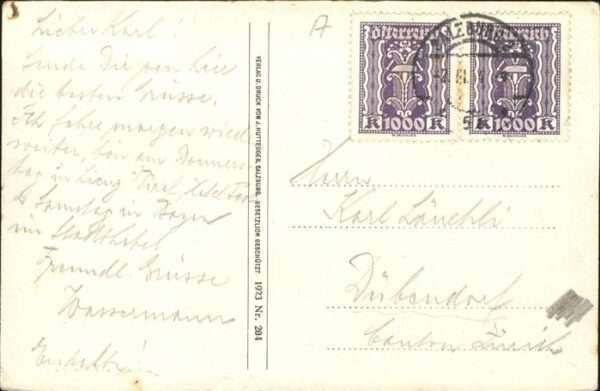 Lieber Karl!
Sende Dir von hier
die besten Grüsse.
Ich fahre morgen wied
weiter, bin am Donners-
tag in Lienz Tirol Hotel
Samstag in
im Stadthotel
Freundl Grüsse
Wassermann
VERLAG U. DRUCK VON J. HUTTEGGER, SALZBURG. GESETZLICH GESCHÜTZT 1923 Nr. 204
A
österreich
1000 K
K 1000 K
Herrn
Karl
Dübendorf
Canton Zürich